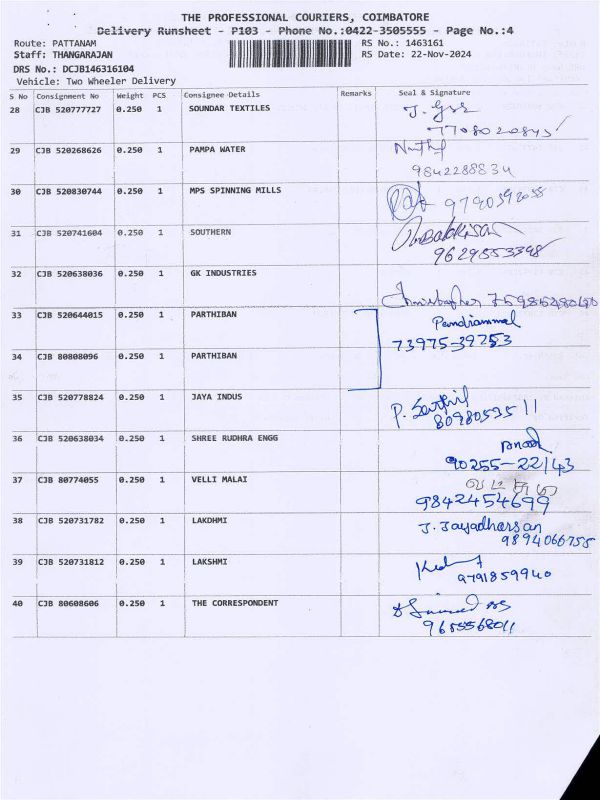 THE PROFESSIONAL COURIERS, COIMBATORE
Delivery Runsheet - P103 - Phone No.:0422-3505555 - Page No.:4
Route: PATTANAM
Staff: THANGARAJAN
RS No.: 1463161
RS Date: 22-Nov-2024
DRS No.: DCJB146316104
Vehicle: Two Wheeler Delivery
S No Consignment No Weight PCS Consignee Details Remarks Seal & Signature
28 CJB 520777727 0.250 1 SOUNDAR TEXTILES
7708020845
29 CJB 520268626 0.250 1 PAMPA WATER
9842288834
30 CJB 520830744 0.250 1 MPS SPINNING MILLS
9790392055
31 CJB 520741604 0.250 1 SOUTHERN
9629553398
32 CJB 520638036 0.250 1 GK INDUSTRIES
Christopher
33 CJB 520644015 0.250 1 PARTHIBAN Pandiammal
73975-39753
34 CJB 80808096 0.250 1 PARTHIBAN
35 CJB 520778824 0.250 1 JAYA INDUS P. Senthil
8098053511
36 CJB 520638034 0.250 1 SHREE RUDHRA ENGG
90255-22143
37 CJB 80774055 0.250 1 VELLI MALAI
9842454699
38 CJB 520731782 0.250 1 LAKDHMI J. Jayadharsan
9894066755
39 CJB 520731812 0.250 1 LAKSHMI
9791859940
40 CJB 80608606 0.250 1 THE CORRESPONDENT
9655568011